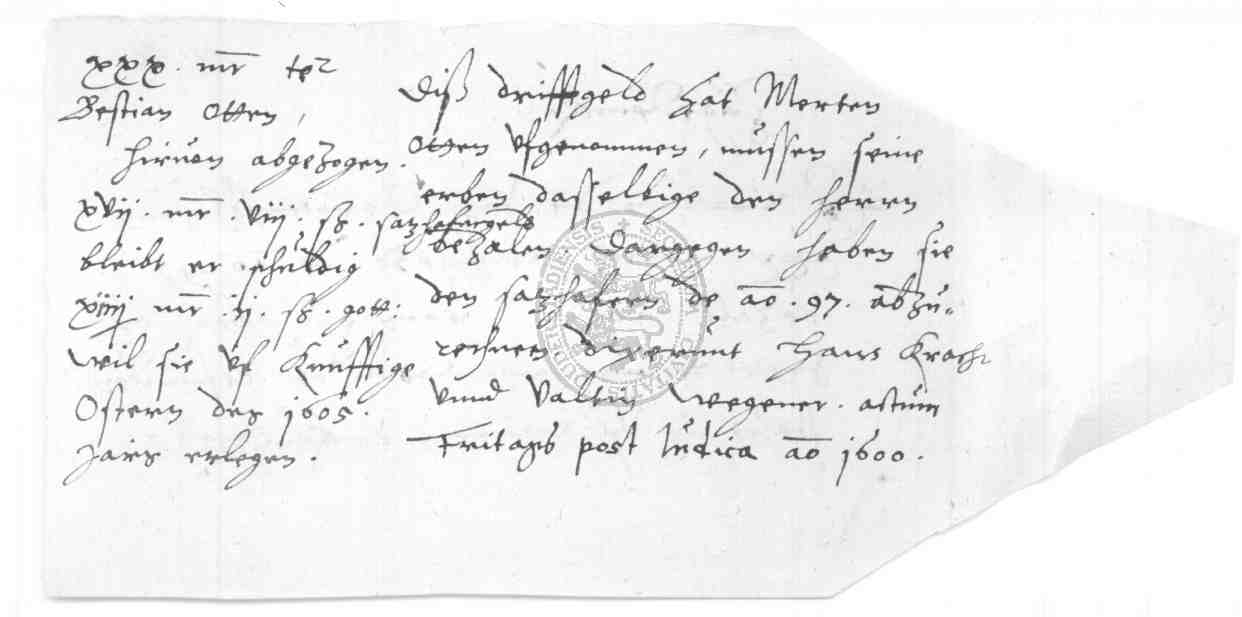 xxx. mr
Bestian Otten,
hiruon abgezogen.
xvij. mr. viij. sz. satzhafergeld
bleibt er schuldig
xiiij mr. ij. sz. gott.
weil sie vf Kunfftige
Ostern des 1605.
Jairs erlegen.
Diß driffegeld hat Merten
Otten vfgenommen, mussen seine
erben dasselbige den herrn
bezalen Dargegen haben sie
den satzhafern de ao. 97. abzu=
rechnen. dixerunt Hans Kracht
vnnd Valtin Wegener. actum
Fritags post Iudica ao 1600.